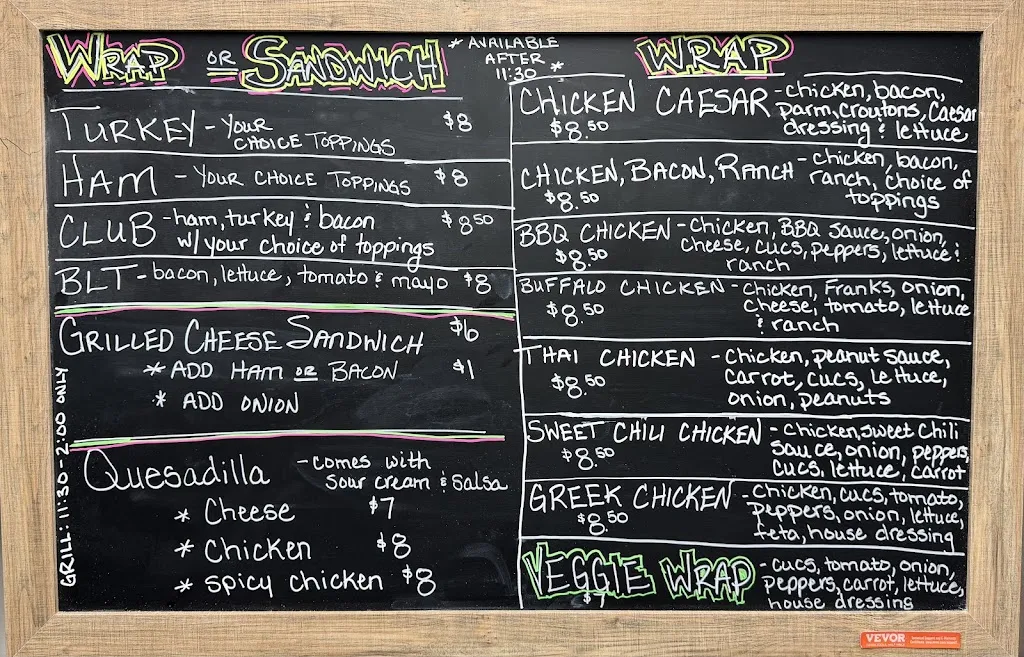 WRAP OR SANDWICH
* AVAILABLE
AFTER
11:30 *
TURKEY - YOUR $8
CHOICE TOPPINGS
HAM - YOUR CHOICE TOPPINGS $8
CLUB - ham, turkey & bacon $8.50
w/ your choice of toppings
BLT - bacon, lettuce, tomato & mayo $8
GRILLED CHEESE SANDWICH $6
* ADD HAM OR BACON $1
* ADD ONION
GRILL: 11:30 - 2:00 ONLY
QUESADILLA - comes with
sour cream & salsa
* Cheese $7
* Chicken $8
* spicy chicken $8
WRAP
CHICKEN CAESAR - chicken, bacon,
$8.50 parm, croutons, Caesar
dressing & lettuce
CHICKEN, BACON, RANCH - chicken, bacon,
$8.50 ranch, choice of
toppings
BBQ CHICKEN - Chicken, BBQ sauce, onion,
$8.50 cheese, cucs, peppers, lettuce &
ranch
BUFFALO CHICKEN - Chicken, Franks, onion,
$8.50 cheese, tomato, lettuce
& ranch
THAI CHICKEN - Chicken, peanut sauce,
$8.50 carrot, cucs, lettuce,
onion, peanuts
SWEET CHILI CHICKEN - Chicken, sweet chili
$8.50 sauce, onion, peppers,
cucs, lettuce, carrot
GREEK CHICKEN - Chicken, cucs, tomato,
$8.50 peppers, onion, lettuce,
feta, house dressing
VEGGIE WRAP - cucs, tomato, onion,
$7 peppers, carrot, lettuce,
house dressing
VEVOR